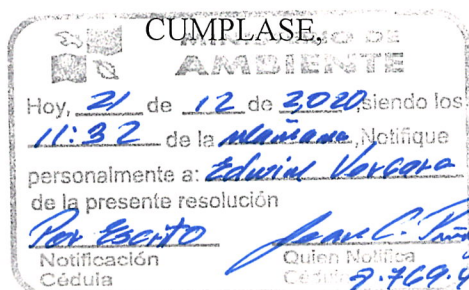 CUMPLASE,
MINISTERIO DE
AMBIENTE
Hoy, 21 de 12 de 2,020, siendo los
11:32 de la mañana, Notifique
personalmente a: Edwrial Vergara
de la presente resolución
Por Escrito
Notificación Quien Notifica
Cédula Cédula